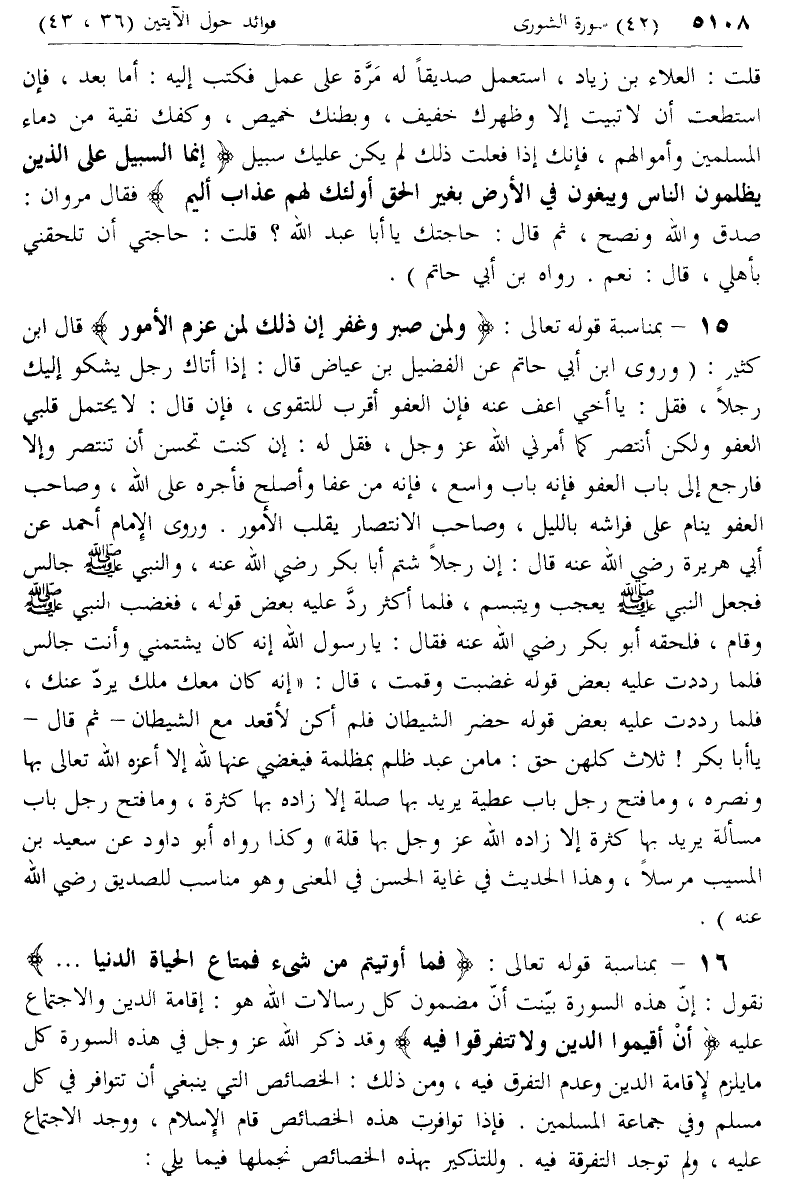 ٥١٠٨ (٤٢) سورة الشورى فوائد حول الآيتين (٣٦ ، ٤٣)
قلت : العلاء بن زياد ، استعمل صديقاً له مَرَّة على عمل فكتب إليه : أما بعد ، فإن
استطعت أن لا تبيت إلا وظهرك خفيف ، وبطنك خميص ، وكفك نقية من دماء
المسلمين وأموالهم ، فإنك إذا فعلت ذلك لم يكن عليك سبيل ﴿ إنما السبيل على الذين
يظلمون الناس ويبغون في الأرض بغير الحق أولئك لهم عذاب أليم ﴾ فقال مروان :
صدق والله ونصح ، ثم قال : حاجتك ياأبا عبد الله ؟ قلت : حاجتي أن تلحقني
بأهلي ، قال : نعم . رواه بن أبي حاتم ) .
١٥ – بمناسبة قوله تعالى : ﴿ ولمن صبر وغفر إن ذلك لمن عزم الأمور ﴾ قال ابن
كثير : ( وروى ابن أبي حاتم عن الفضيل بن عياض قال : إذا أتاك رجل يشكو إليك
رجلاً ، فقل : ياأخي اعف عنه فإن العفو أقرب للتقوى ، فإن قال : لايحتمل قلبي
العفو ولكن أنتصر كما أمرني الله عز وجل ، فقل له : إن كنت تحسن أن تنتصر وإلا
فارجع إلى باب العفو فإنه باب واسع ، فإنه من عفا وأصلح فأجره على الله ، وصاحب
العفو ينام على فراشه بالليل ، وصاحب الانتصار يقلب الأمور . وروى الإمام أحمد عن
أبي هريرة رضي الله عنه قال : إن رجلاً شتم أبا بكر رضي الله عنه ، والنبي ﷺ جالس
فجعل النبي ﷺ يعجب ويتبسم ، فلما أكثر ردَّ عليه بعض قوله ، فغضب النبي ﷺ
وقام ، فلحقه أبو بكر رضي الله عنه فقال : يارسول الله إنه كان يشتمني وأنت جالس
فلما رددت عليه بعض قوله غضبت وقمت ، قال : «إنه كان معك ملك يردّ عنك ،
فلما رددت عليه بعض قوله حضر الشيطان فلم أكن لأقعد مع الشيطان – ثم قال –
ياأبا بكر ! ثلاث كلهن حق : مامن عبد ظلم بمظلمة فيغضي عنها لله إلا أعزه الله تعالى بها
ونصره ، ومافتح رجل باب عطية يريد بها صلة إلا زاده بها كثرة ، ومافتح رجل باب
مسألة يريد بها كثرة إلا زاده الله عز وجل بها قلة» وكذا رواه أبو داود عن سعيد بن
المسيب مرسلاً ، وهذا الحديث في غاية الحسن في المعنى وهو مناسب للصديق رضي الله
عنه ) .
١٦ – بمناسبة قوله تعالى : ﴿ فما أوتيتم من شيء فمتاع الحياة الدنيا ... ﴾
نقول : إنّ هذه السورة بيّنت أنّ مضمون كل رسالات الله هو : إقامة الدين والاجتماع
عليه ﴿ أنْ أقيموا الدين ولاتتفرقوا فيه ﴾ وقد ذكر الله عز وجل في هذه السورة كل
مايلزم لإقامة الدين وعدم التفرق فيه ، ومن ذلك : الخصائص التي ينبغي أن تتوافر في كل
مسلم وفي جماعة المسلمين . فإذا توافرت هذه الخصائص قام الإسلام ، ووجد الاجتماع
عليه ، ولم توجد التفرقة فيه . وللتذكير بهذه الخصائص نجملها فيما يلي :